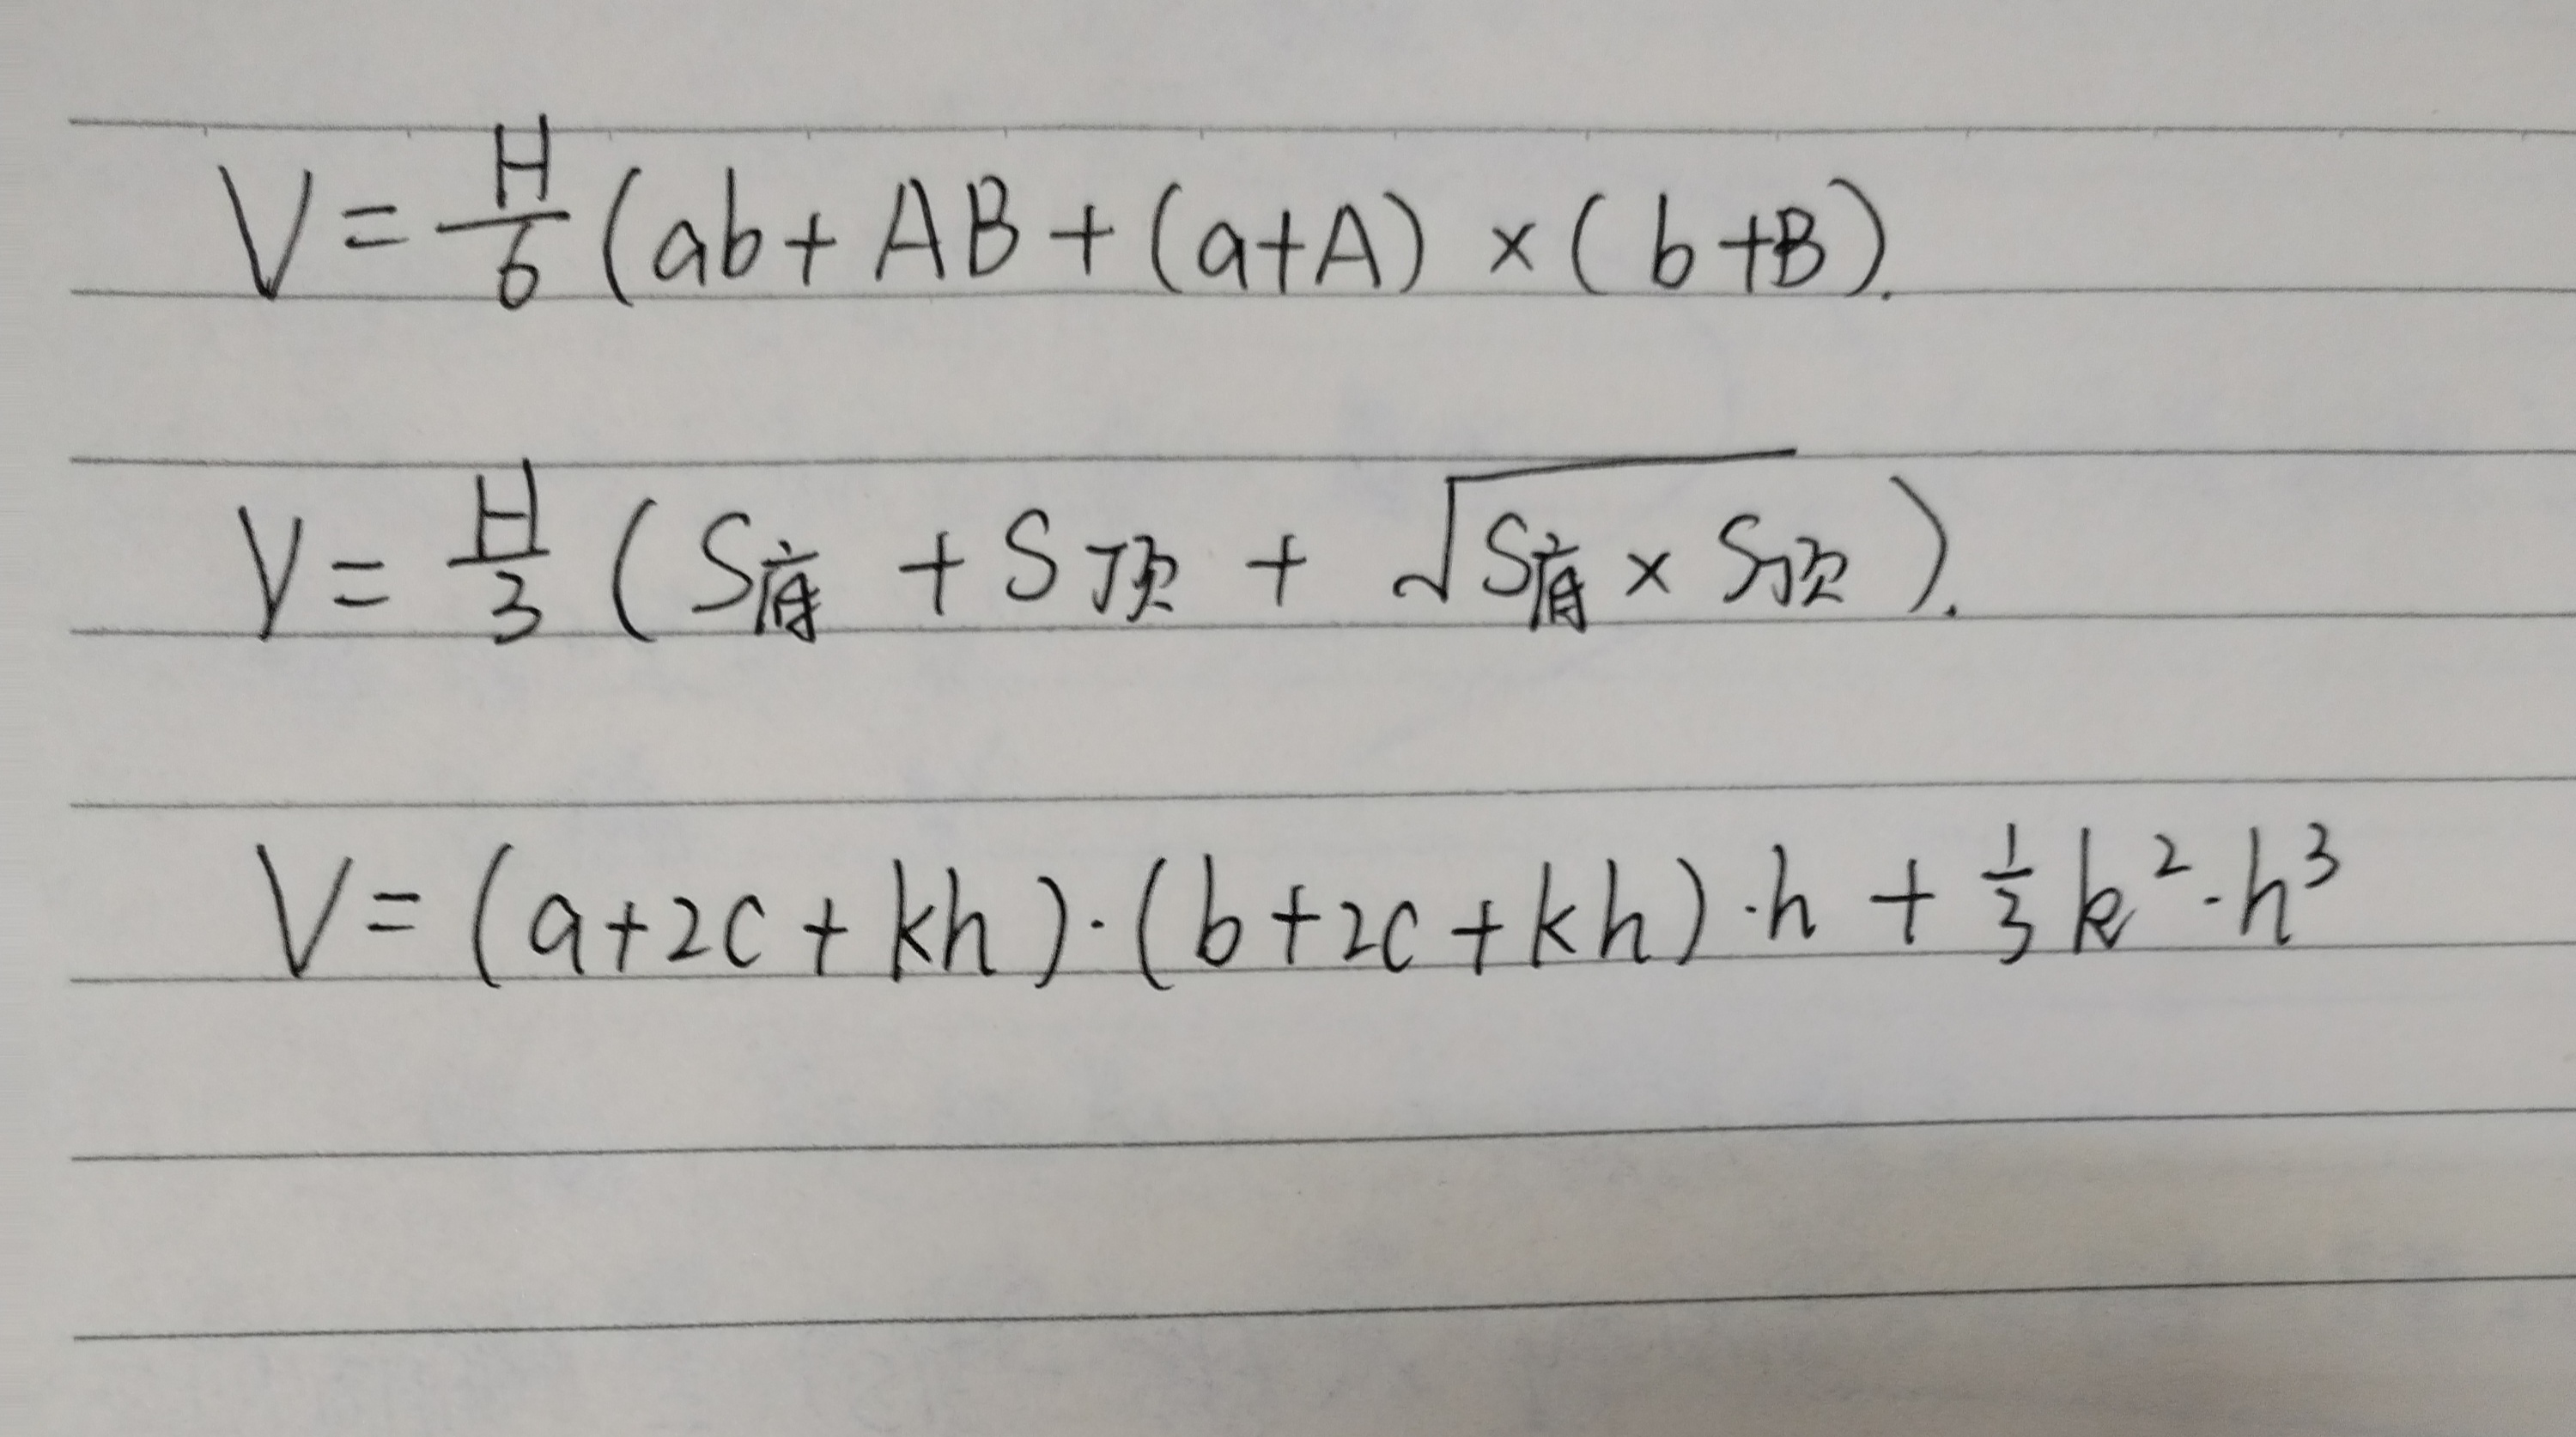 V = H/6 (ab + AB + (a+A) × (b+B).
V = H/3 (S底 + S顶 + √S底 × S顶).
V = (a+2c+kh)·(b+2c+kh)·h + 1/3 k²·h³